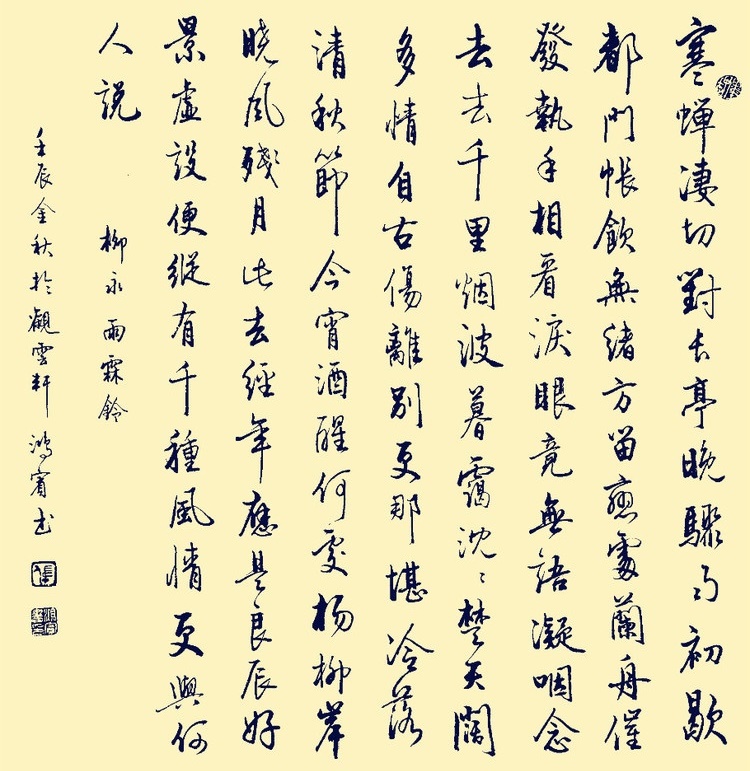 寒蟬淒切對長亭晚驟雨初歇
都門帳飲無緒方留戀處蘭舟催
發執手相看淚眼竟無語凝咽念
去去千里烟波暮靄沈沈楚天闊
多情自古傷離別更那堪冷落
清秋節今宵酒醒何處楊柳岸
曉風殘月此去經年應是良辰好
景虛設便縱有千種風情更與何
人說
柳永雨霖鈴
壬辰金秋於觀雲軒鴻賓書